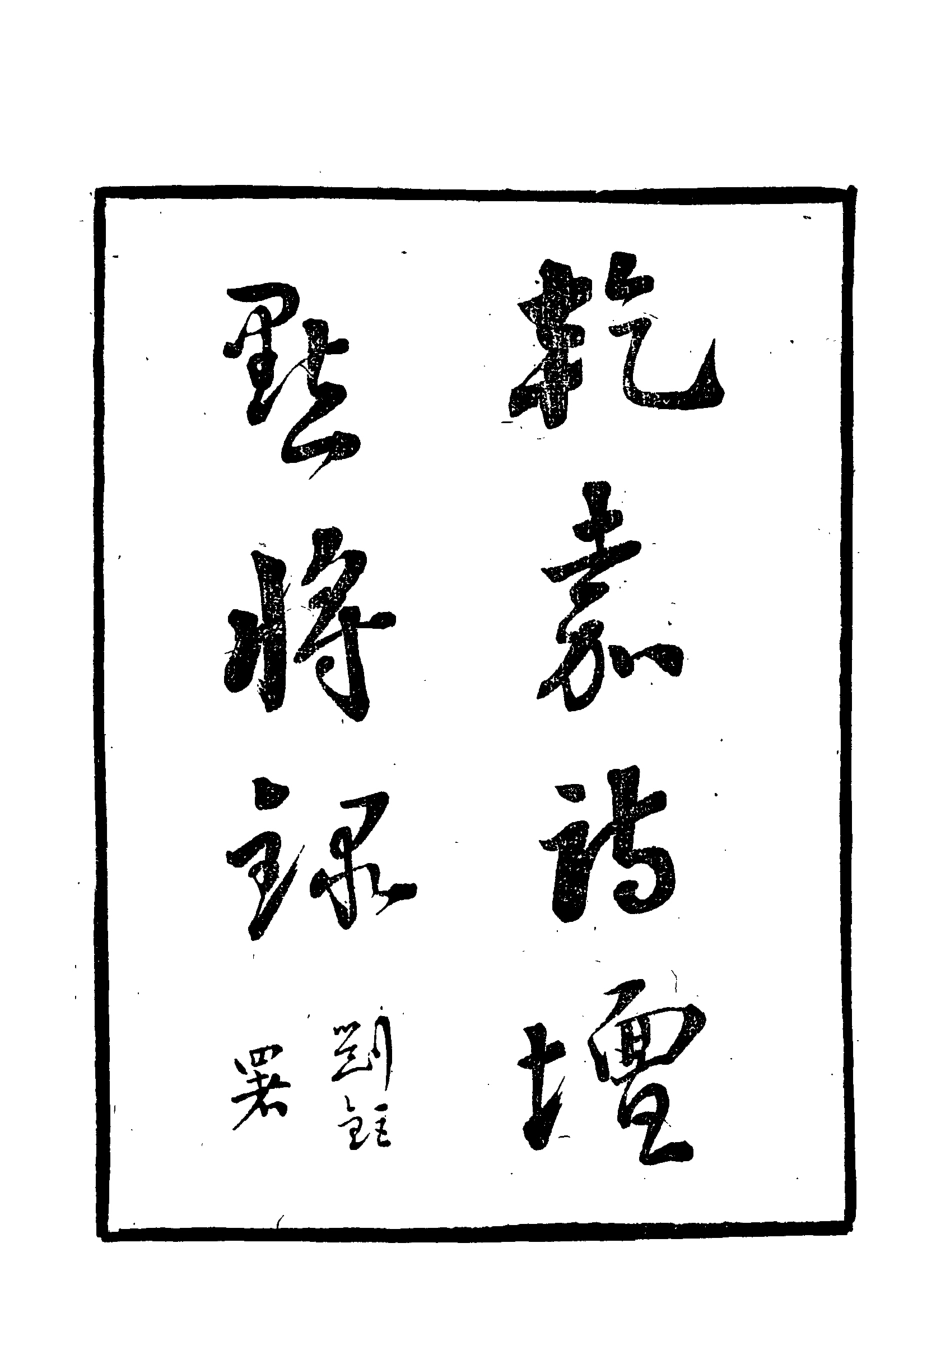 乾嘉詩壇
點將録
劉鉅
署